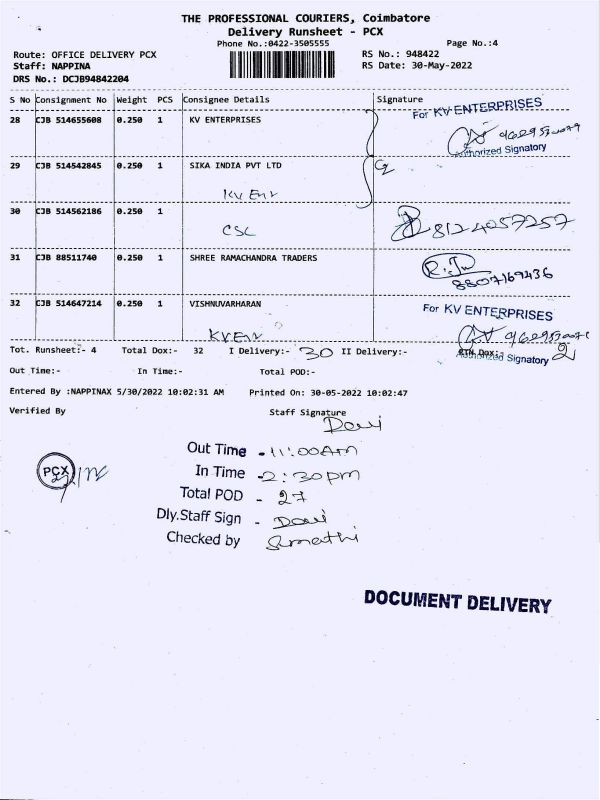 THE PROFESSIONAL COURIERS, Coimbatore
Delivery Runsheet - PCX
Phone No.:0422-3505555
Page No.:4
Route: OFFICE DELIVERY PCX
RS No.: 948422
Staff: NAPPINA
RS Date: 30-May-2022
DRS No.: DCJB94842204
S No Consignment No Weight PCS Consignee Details Signature
For KV ENTERPRISES
28 CJB 514655608 0.250 1 KV ENTERPRISES
Authorized Signatory
29 CJB 514542845 0.250 1 SIKA INDIA PVT LTD
KV Enr
30 CJB 514562186 0.250 1
CSC 8124057257
31 CJB 88511740 0.250 1 SHREE RAMACHANDRA TRADERS
8807169436
32 CJB 514647214 0.250 1 VISHNUVARHARAN
For KV ENTERPRISES
KV Enr
Tot. Runsheet:- 4 Total Dox:- 32 I Delivery:- 30 II Delivery:- RTN Dox:- 2
Authorized Signatory
Out Time:- In Time:- Total POD:-
Entered By :NAPPINAX 5/30/2022 10:02:31 AM Printed On: 30-05-2022 10:02:47
Verified By Staff Signature
Devi
Out Time - 11:00Am
In Time - 2:30pm
PCX
Total POD - 27
Dly.Staff Sign - Devi
Checked by Sumathi
DOCUMENT DELIVERY